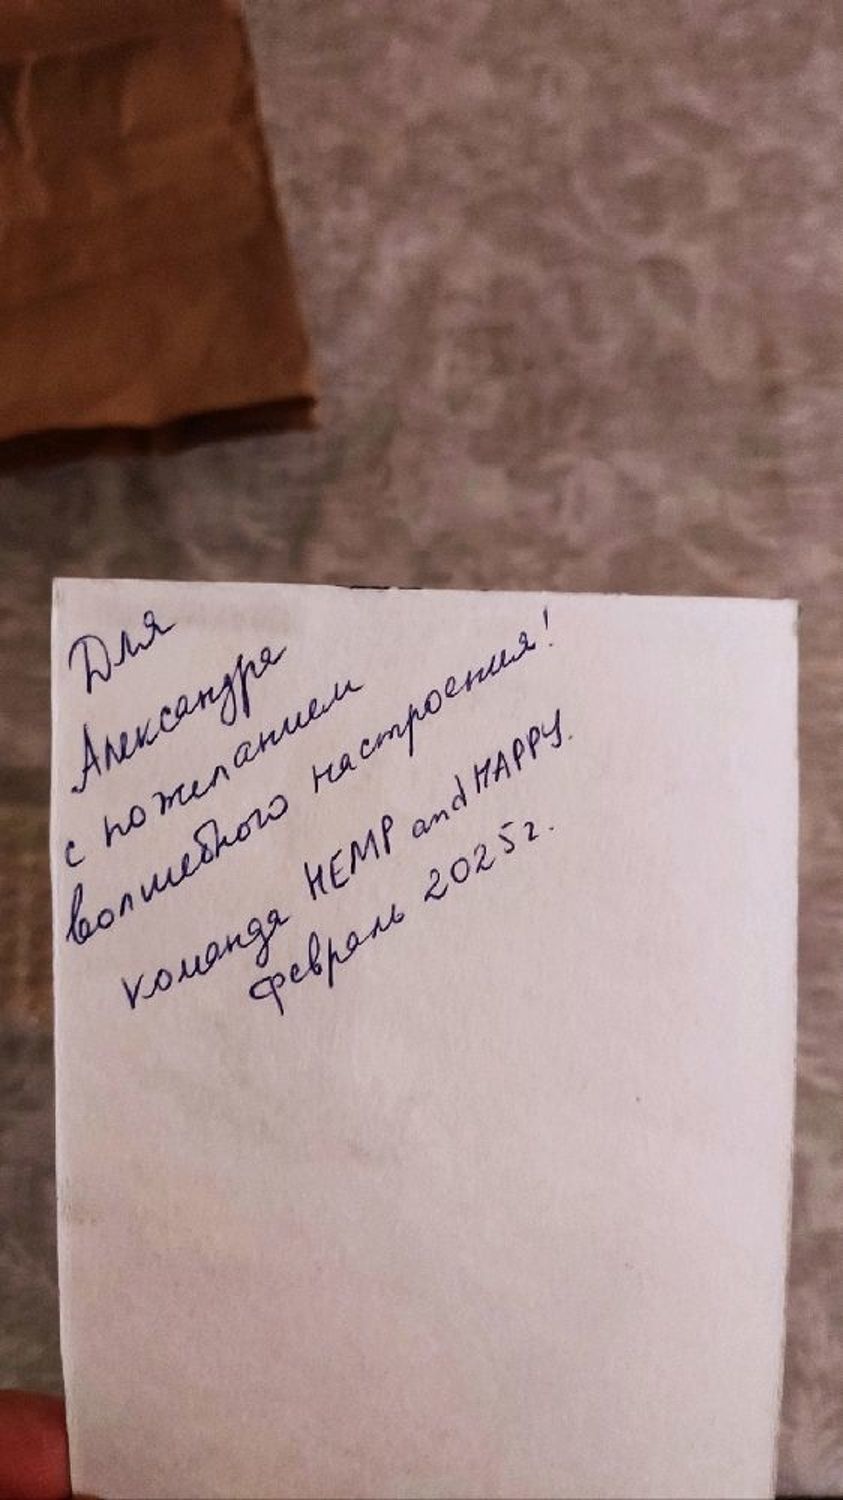 Для
Александра
с пожеланием
волшебного настроения!
команда HEMP and HAPPY.
февраль 2025г.